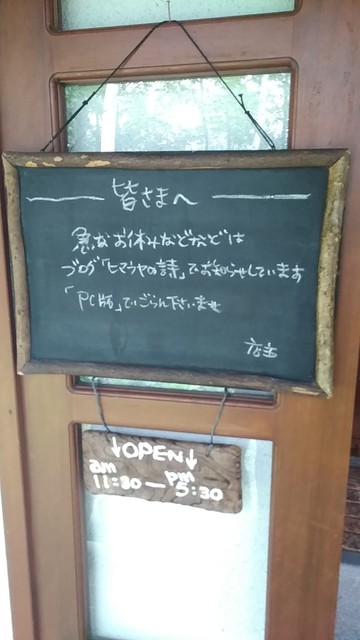 皆さまへ
急なお休みなどなどは
ブログ「ヒマラヤの詩」でお知らせしています
「PC版」でごらん下さいませ
店主
↓OPEN↓
am pm
11:30 — 5:30